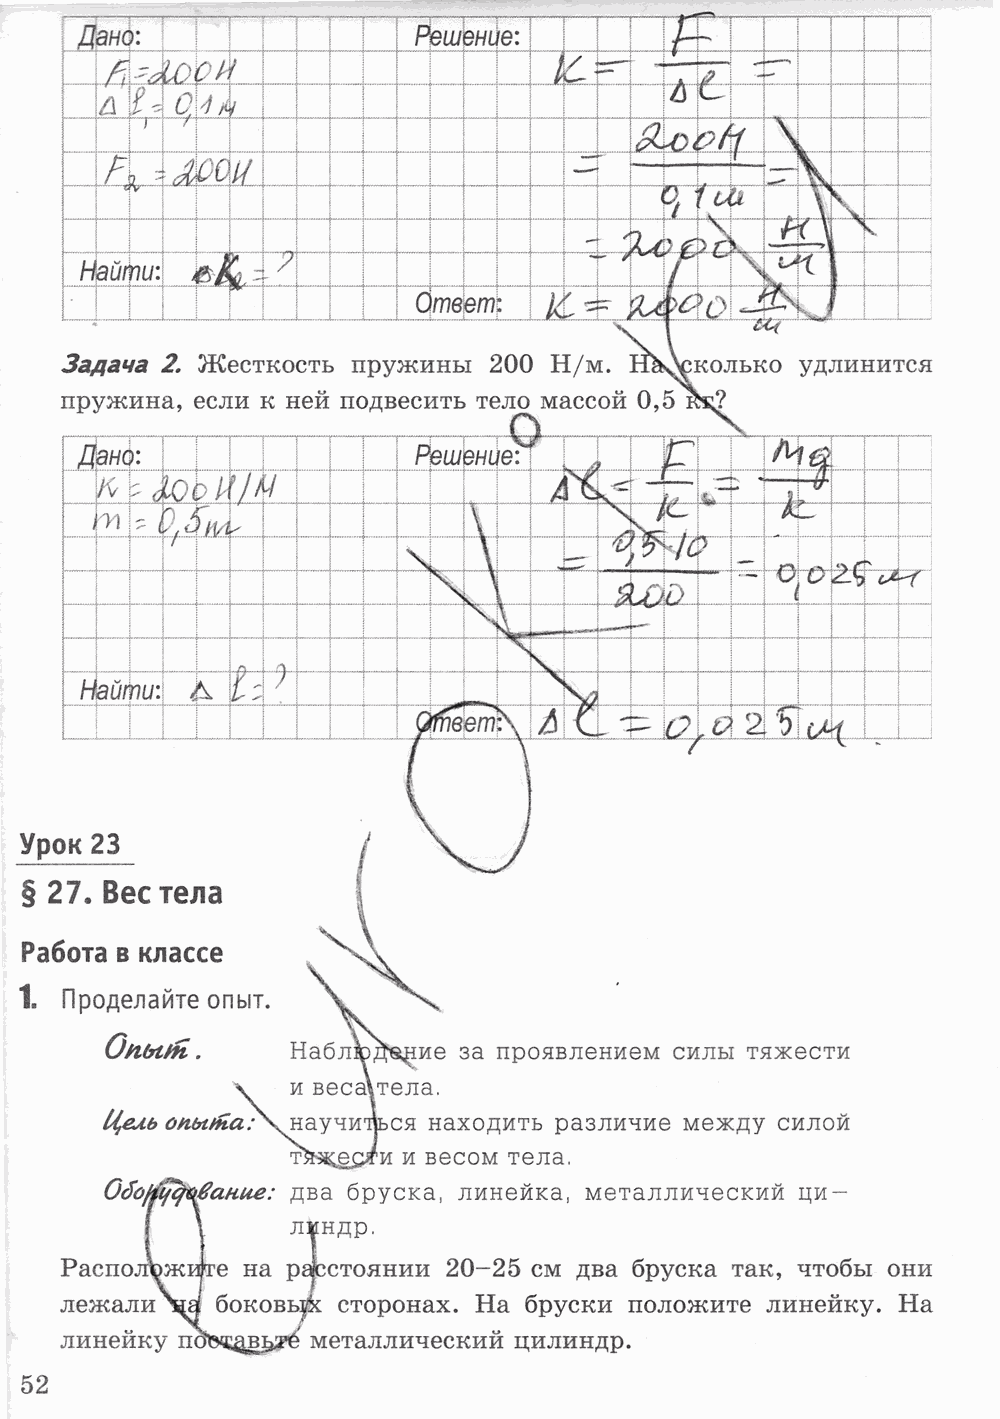 Дано:
F₁=200Н
Δl₁=0,1м
F₂=200Н
Найти: K₂=?
Решение:
K= F/Δl =
= 200Н/0,1м =
=2000 Н/м
Ответ: K=2000 Н/м
Задача 2. Жесткость пружины 200 Н/м. На сколько удлинится
пружина, если к ней подвесить тело массой 0,5 кг?
Дано:
K=200Н/м
m=0,5кг
Найти: Δl=?
Решение:
Δl= F/k = mg/k
= 0,5·10/200 = 0,025м
Ответ: Δl=0,025м.
Урок 23
§ 27. Вес тела
Работа в классе
1. Проделайте опыт.
Опыт. Наблюдение за проявлением силы тяжести
и веса тела.
Цель опыта: научиться находить различие между силой
тяжести и весом тела.
Оборудование: два бруска, линейка, металлический ци-
линдр.
Расположите на расстоянии 20–25 см два бруска так, чтобы они
лежали на боковых сторонах. На бруски положите линейку. На
линейку поставьте металлический цилиндр.
52